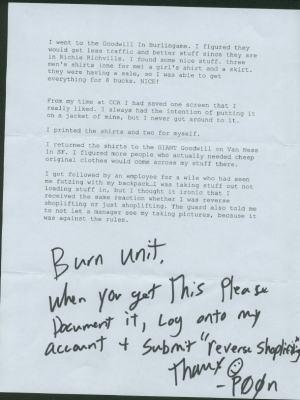 I went to the Goodwill In Burlingame. I figured they
would get less traffic and better stuff since they are
in Richie Richville. I found some nice stuff. three
men's shirts (one for me) a girl's shirt and a skirt.
they were having a sale, so I was able to get
everything for 8 bucks. NICE!
From my time at CCA I had saved one screen that I
really liked. I always had the intention of putting it
on a jacket of mine, but I never got around to it.
I printed the shirts and two for myself.
I returned the shirts to the GIANT Goodwill on Van Ness
in SF. I figured more people who actually needed cheep
original clothes would come across my stuff there.
I got followed by an employee for a wile who had seen
me futzing with my backpack…I was taking stuff out not
loading stuff in, but I thought it ironic that I
received the same reaction whether I was reverse
shoplifting or just shoplifting. The guard also told me
to not let a manager see my taking pictures, because it
was against the rules.
Burn Unit,
When you get This Please
Document it, Log onto my
account + Submit "reverse shoplifting"
Thanx
-PØØn